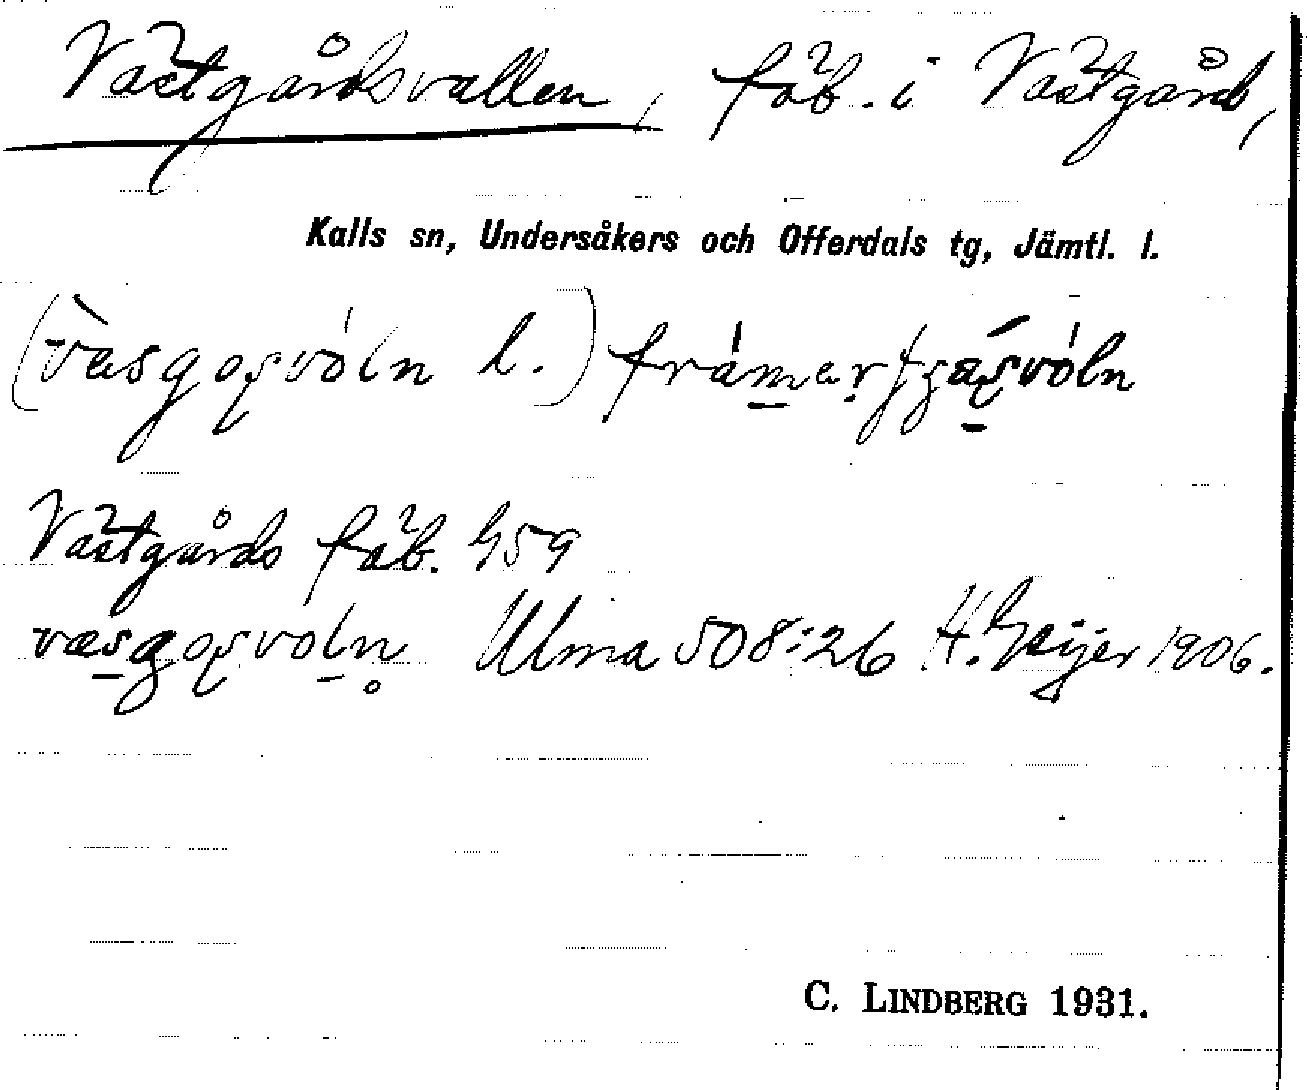 Västgårdsvallen, fäb. i Västgård,
Kalls sn, Undersåkers och Offerdals tg, Jämtl. l.
(väsgoʂvóln l.)
Västgårds fäb. G59
væsgoʂvoln̥ Ulma 508:26 H. Geijer 1906.
C. LINDBERG 1931.